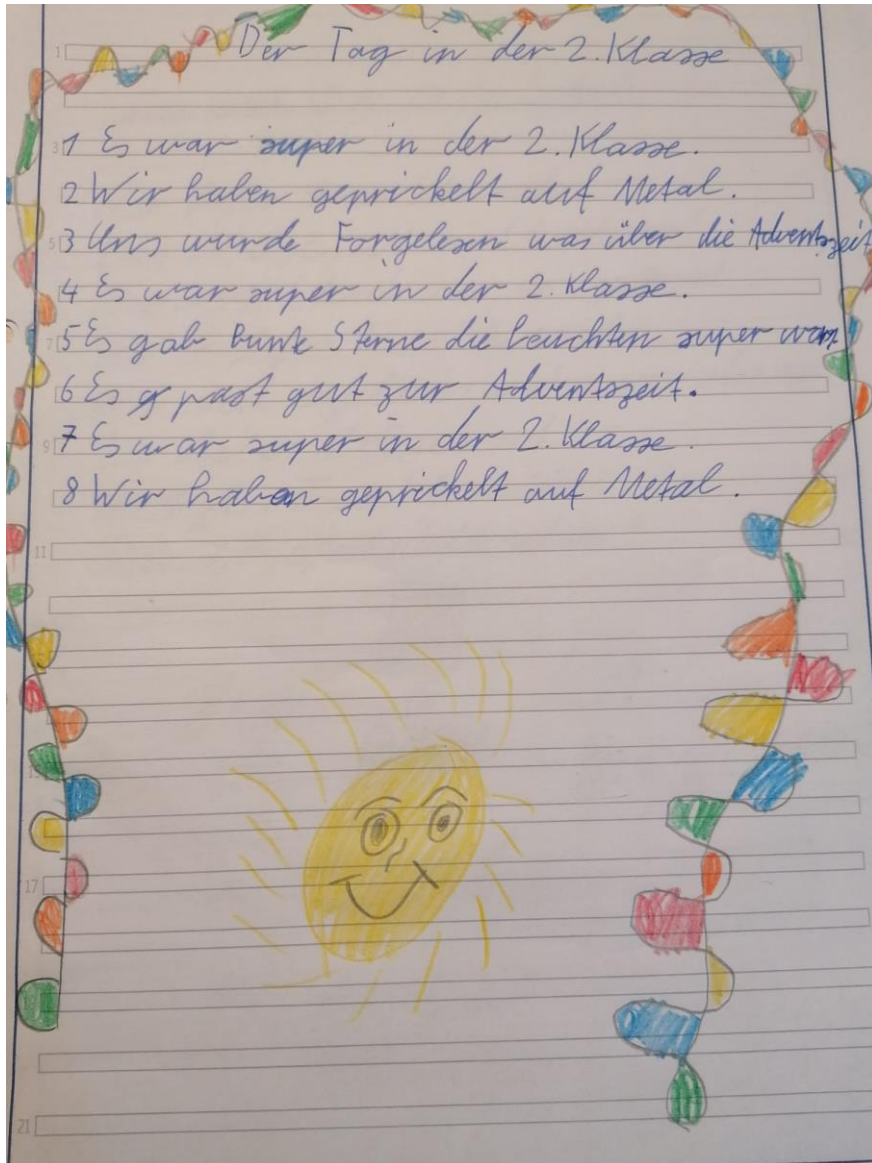 Der Tag in der 2. Klasse
1 Es war super in der 2. Klasse.
2 Wir haben geprickelt auf Metal.
3 Uns wurde Forgelesen was über die Adventszeit
4 Es war super in der 2. Klasse.
5 Es gab Bunte Sterne die leuchten super warm
6 Es past gut zur Adventszeit.
7 Es war super in der 2. Klasse.
8 Wir haben geprickelt auf Metal.